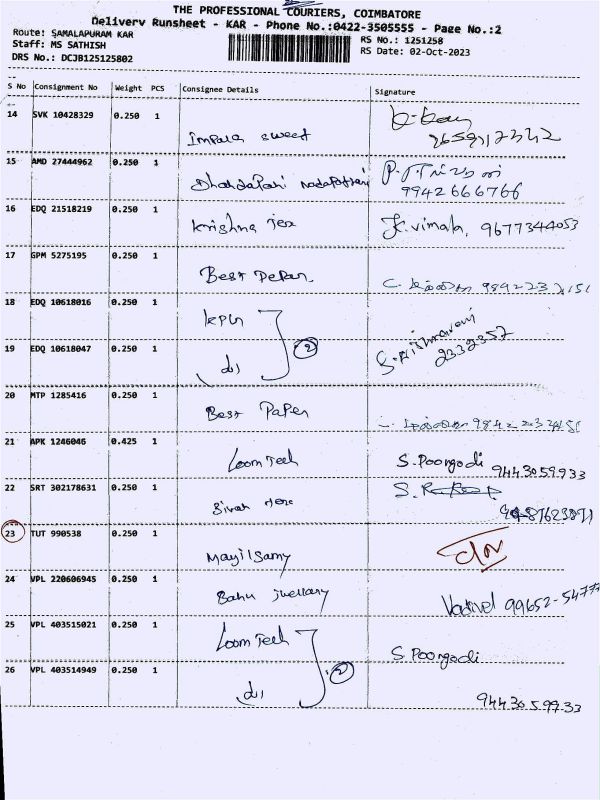 THE PROFESSIONAL COURIERS, COIMBATORE
Delivery Runsheet - KAR - Phone No.:0422-3505555 - Page No.:2
Route: SAMALAPURAM KAR
RS No.: 1251258
Staff: MS SATHISH
RS Date: 02-Oct-2023
DRS No.: DCJB125125802
S No Consignment No Weight PCS Consignee Details Signature
14 SVK 10428329 0.250 1
Impala sweet
15 AMD 27444962 0.250 1
Dhandapani
9942666766
16 EDQ 21518219 0.250 1
Krishna Tex K.vimala, 9677344053
17 GPM 5275195 0.250 1
Best Peper
18 EDQ 10618016 0.250 1
KPM
2
19 EDQ 10618047 0.250 1
2332357
20 MTP 1285416 0.250 1
Best Paper
21 APK 1246046 0.425 1
Loom Tech S. Poongodi 9443059933
22 SRT 302178631 0.250 1
23 TUT 990538 0.250 1
Mayilsamy
24 VPL 220606945 0.250 1
Babu Vadivel 99652-54777
25 VPL 403515021 0.250 1
Loom Tech S. Poongodi
2
26 VPL 403514949 0.250 1
9443059933